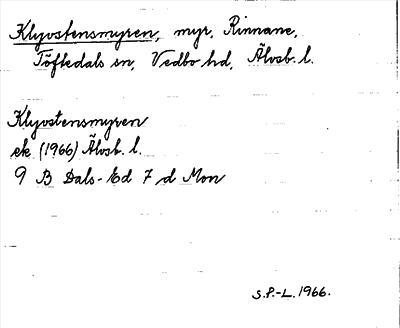 Klyvostensmyren, myr, Rinnane,
Töftedals sn, Vedbo hd, Älvsb. l.
Klyvostensmyren
ek (1966) Älvsb. l.
9 B Dals-Ed 7 d Mon
S.P.-L. 1966.